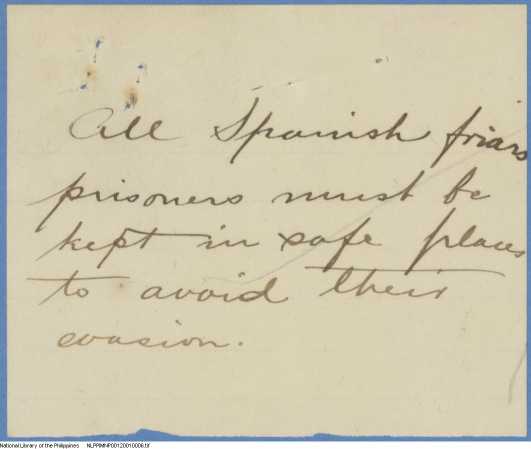 All Spanish friars
prisoners must be
kept in safe places
to avoid their
evasion.
National Library of the Philippines NLPPIMNP00120010006.tif